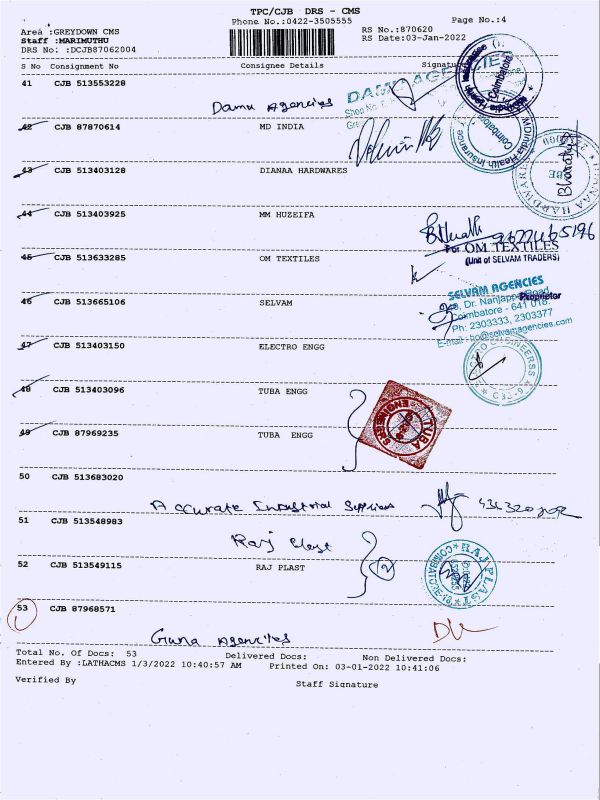 TPC/CJB DRS - CMS
Phone No.:0422-3505555 Page No.:4
Area :GREYDOWN CMS RS No.:870620
Staff :MARIMUTHU RS Date:03-Jan-2022
DRS No: :DCJB87062004
S No Consignment No Consignee Details Signature
41 CJB 513553228
Damu Agencies
DAMU AGENCIES
42 CJB 87870614 MD INDIA
MDIndia Health Insurance
Coimbatore
43 CJB 513403128 DIANAA HARDWARES
44 CJB 513403925 MM HUZEIFA
For OM TEXTILES
(Unit of SELVAM TRADERS)
45 CJB 513633285 OM TEXTILES
Proprietor
SELVAM AGENCIES
Dr. Nanjappa Road,
Coimbatore - 641 018.
Ph: 2303333, 2303377
E-mail : ho@selvamagencies.com
46 CJB 513665106 SELVAM
47 CJB 513403150 ELECTRO ENGG
48 CJB 513403096 TUBA ENGG
TUBA
49 CJB 87969235 TUBA ENGG
50 CJB 513683020
Accurate Industrial Suppliers
51 CJB 513548983
Raj Plast
52 CJB 513549115 RAJ PLAST
2
RAJ PLAST
53 CJB 87968571
Guna Agencies
Total No. Of Docs: 53 Delivered Docs: Non Delivered Docs:
Entered By :LATHACMS 1/3/2022 10:40:57 AM Printed On: 03-01-2022 10:41:06
Verified By Staff Signature